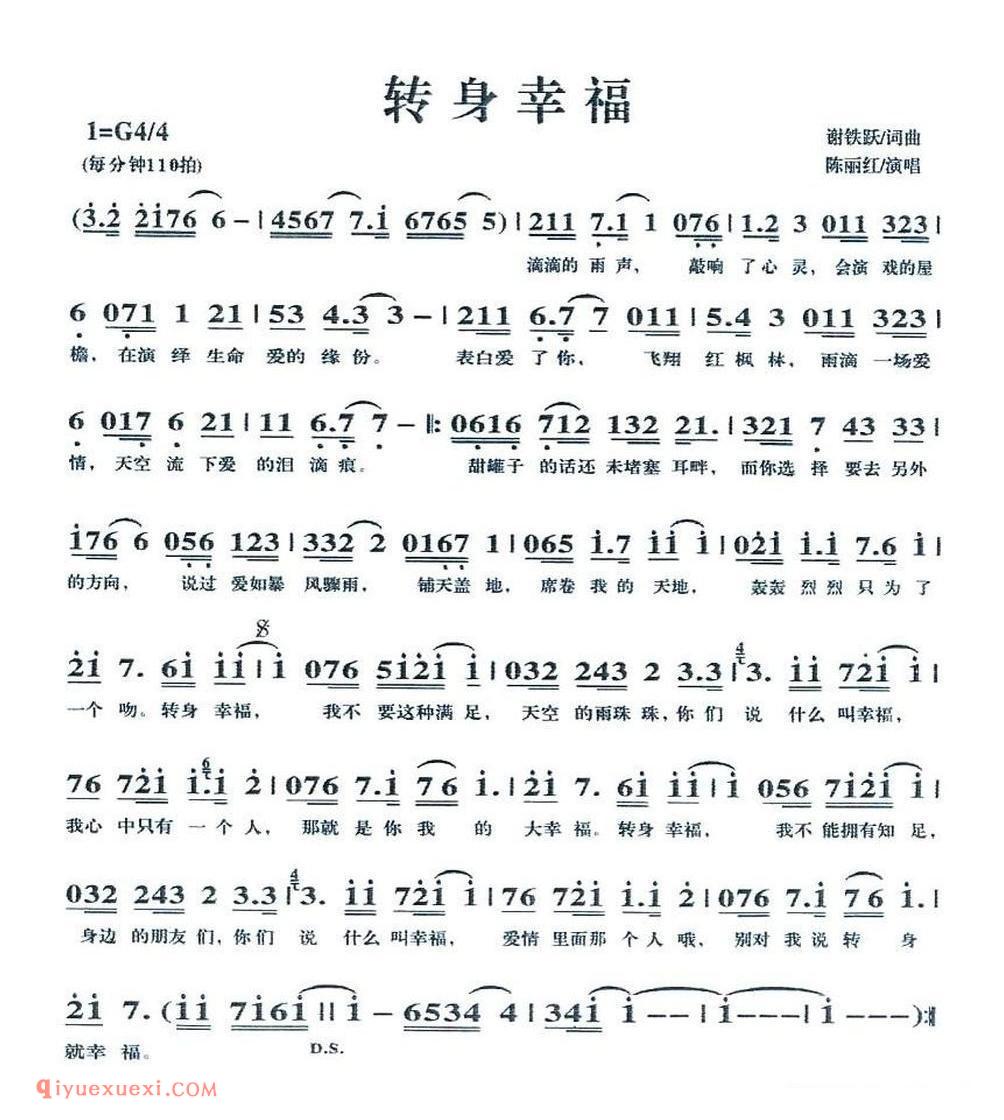 转身幸福
1=G4/4
谢铁跃/词曲
(每分钟110拍)
陈丽红/演唱
(3.2 2176 6 - | 4567 7.1 6765 5) | 211 7.1 1 076 | 1.2 3 011 323 |
滴滴的 雨声， 敲响 了心 灵， 会演 戏的屋
6 071 1 21 | 53 4.3 3 - | 211 6.7 7 011 | 5.4 3 011 323 |
檐，在演 绎 生命 爱的 缘份。 表白爱 了你， 飞翔 红枫 林，雨滴 一场爱
6 017 6 21 | 11 6.7 7 - |: 0616 712 132 21. | 321 7 43 33 |
情，天空 流 下爱 的泪 滴痕。 甜罐子 的话还 未堵塞 耳畔， 而你选 择 要去 另外
176 6 056 123 | 332 2 0167 1 | 065 1.7 11 1 | 021 1.1 7.6 1 |
的方向， 说过 爱如暴 风骤雨， 铺天盖 地，席卷 我的 天地， 轰轰 烈烈 只为 了
21 7. 61 11 | 1 076 5121 1 | 032 243 2 3.3 | 4 3. 11 721 1 |
一个 吻。转身 幸福， 我不 要这种满 足，天空 的雨珠 珠，你们 说 什么 叫幸福，
76 721 6 1.1 2 | 076 7.1 76 1. | 21 7. 61 11 | 1 056 7121 1 |
我心 中只有 一个 人， 那就 是你 我 的 大幸 福。转身 幸福， 我不 能拥有知 足，
032 243 2 3.3 | 4 3. 11 721 1 | 76 721 1.1 2 | 076 7.1 76 1. |
身边 的朋友 们，你们 说 什么 叫幸福， 爱情 里面那 个人 哦， 别对 我说 转 身
21 7. (11 7161 || 1 - 6534 4 | 341 1 - - | 1 - - - | 1 - - - ) :||
D.S.
就幸 福。
qiyuexuexi.com(奇乐学习)